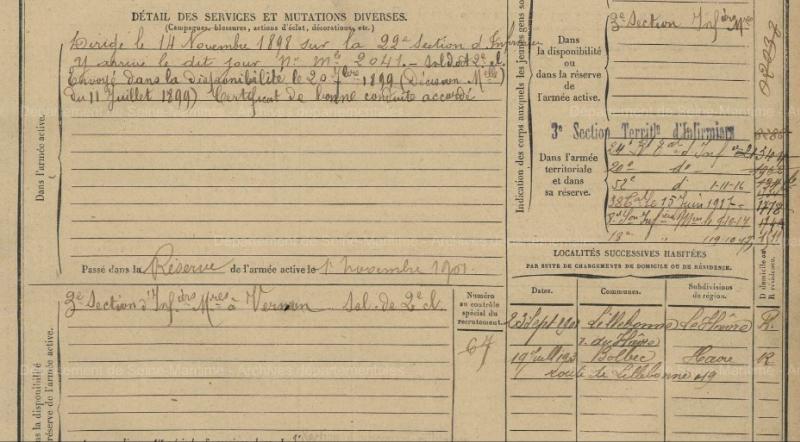 DÉTAIL DES SERVICES ET MUTATIONS DIVERSES.
(Campagnes, blessures, actions d'éclat, décorations, etc.)
Dirigé le 14 Novembre 1898 sur la 22e Section d'Infirmiers
Y arrive le dit jour No Mle 2041. Soldat 2e cl.
Envoyé dans la disponibilité le 20 7bre 1899 (Décision Mlle
du 11 Juillet 1899) Certificat de bonne conduite accordé
Dans l'armée active.
Passé dans la Réserve de l'armée active le 1er Novembre 1901.
3e Section d'Inf.ers M.res à Vernon Sol. de 2e cl.
Numéro
au contrôle
spécial du
recrutement.
64
la disponibilité
réserve de l'armée active.
Indication des corps auxquels les jeunes gens
Dans
la disponibilité
ou
dans la réserve
de
l'armée active.
3e Section Inf.ers M.res
3e Section Territle d'Infirmiers
Dans l'armée
territoriale
et dans
sa réserve.
24e Rt d'Inf
20e do
52e d 1-11-16
15 Juin 1917
LOCALITÉS SUCCESSIVES HABITÉES
PAR SUITE DE CHANGEMENTS DE DOMICILE OU DE RÉSIDENCE.
Dates. Communes. Subdivisions de région. D domicile ou R résidence.
23 Sept Lillebonne Le Havre R.
r. du Havre
19 Juill Bolbec Havre R
route de Lillebonne 19
Département de Seine-Maritime - Archives départementales